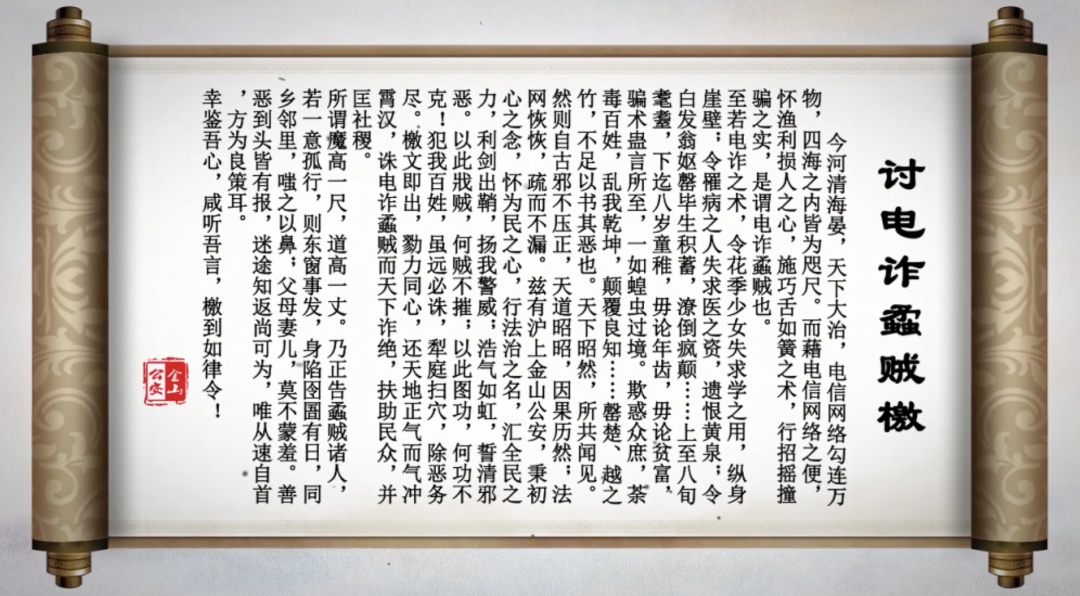 讨电诈蟊贼檄
今河清海晏，天下大治，电信网络勾连万
物，四海之内皆为咫尺。而藉电信网络之便，
怀渔利损人之心，施巧舌如簧之术，行招摇撞
骗之实，是谓电诈蟊贼也。
至若电诈之术，令花季少女失求学之用，纵身
崖壁；令罹病之人失求医之资，遗恨黄泉；令
白发翁妪罄毕生积蓄，潦倒疯颠……上至八旬
耄耋，下迄八岁童稚，毋论年齿，毋论贫富，
骗术蛊言所至，一如蝗虫过境。欺惑众庶，荼
毒百姓，乱我乾坤，颠覆良知……罄楚、越之
竹，不足以书其恶也。天下昭然，所共闻见。
然则自古邪不压正，天道昭昭，因果历然；法
网恢恢，疏而不漏。兹有沪上金山公安，秉初
心之念，怀为民之心，行法治之名，汇全民之
力，利剑出鞘，扬我警威；浩气如虹，誓清邪
恶。以此戕贼，何贼不摧；以此图功，何功不
克！犯我百姓，虽远必诛，犁庭扫穴，除恶务
尽。檄文即出，勠力同心，还天地正气而气冲
霄汉，诛电诈蟊贼而天下诈绝，扶助民众，并
匡社稷。
所谓魔高一尺，道高一丈。乃正告蟊贼诸人，
若一意孤行，则东窗事发，身陷囹圄有日，同
乡邻里，嗤之以鼻；父母妻儿，莫不蒙羞。善
恶到头皆有报，迷途知返尚可为，唯从速自首
，方为良策耳。
幸鉴吾心，咸听吾言，檄到如律令！
金山
公安